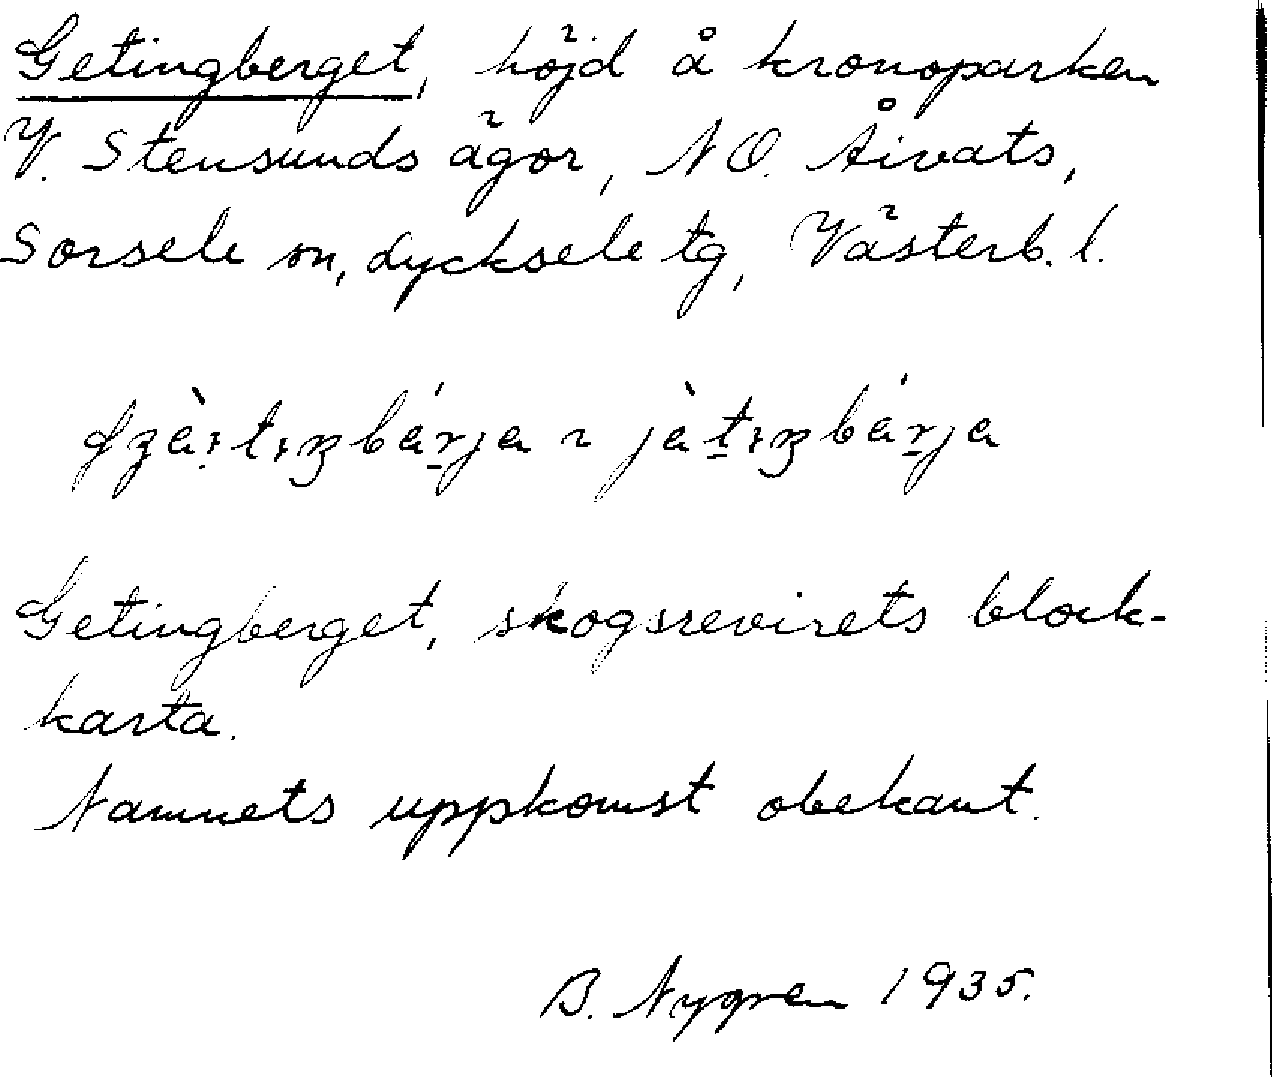 Getingberget, höjd å kronoparken
V. Stensunds ägor, NO. Åivats,
Sorsele sn, Lycksele tg, Västerb. l.
Getingberget, skogsrevirets block-
karta.
Namnets uppkomst obekant.
B. Nygren 1935.